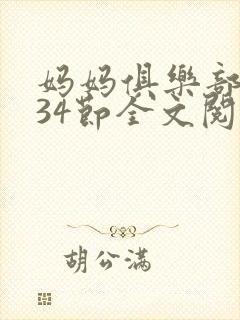 妈妈俱樂部
34節全文閱
胡公滿